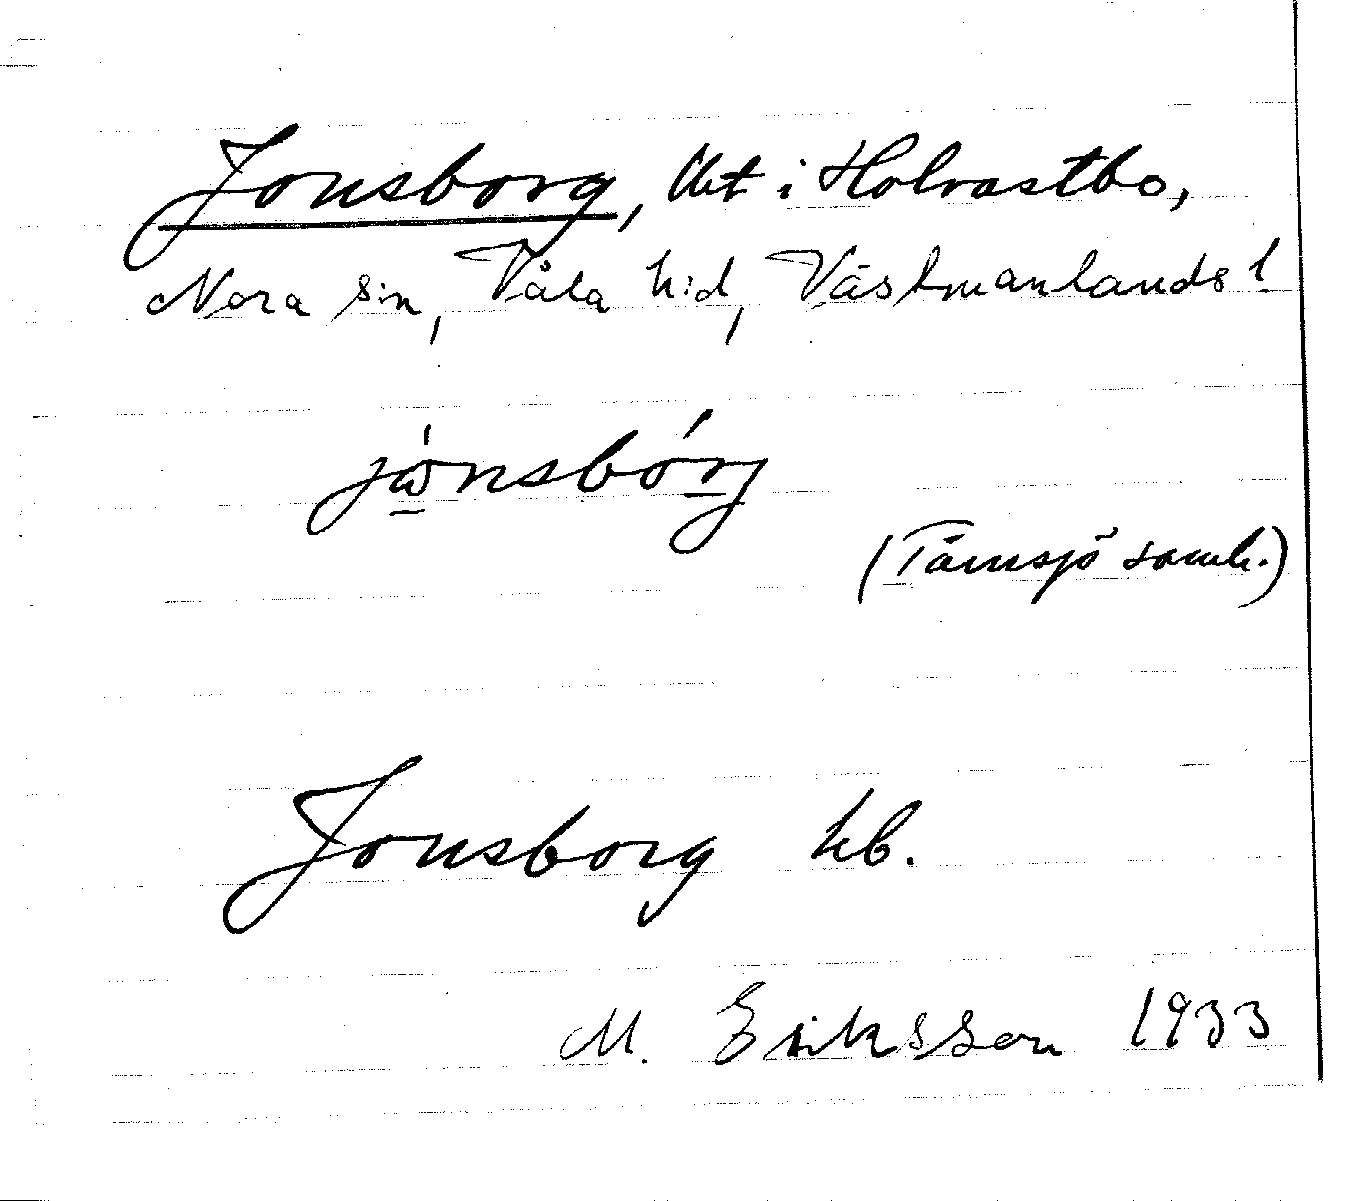 Jonsborg, lht i Holvastbo,
Nora s:n, Våla h:d, Västmanlands l
jònsbórj
(Tärnsjö samh.)
Jonsborg hb.
M. Eriksson 1933